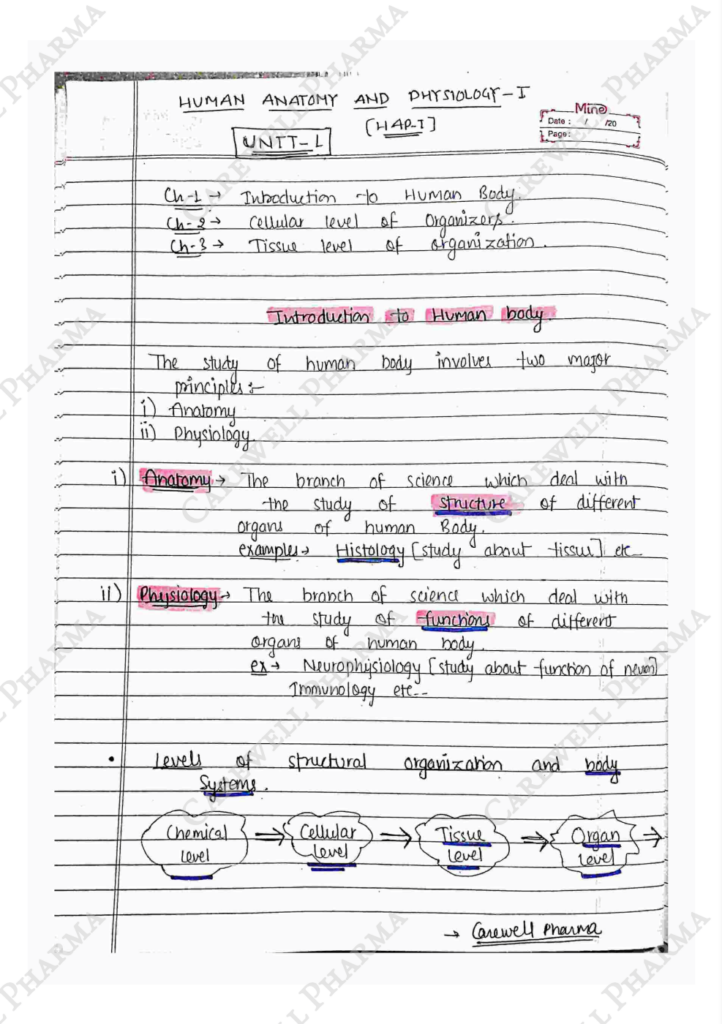 HUMAN ANATOMY AND PHYSIOLOGY-I
[HAP-I]
Mine
Date : / /20
Page:
UNIT-1
Ch-1 → Introduction to Human Body.
Ch-2 → Cellular level of Organizers.
Ch-3 → Tissue level of organization.
Introduction to Human body.
The study of human body involves two major
principles :-
i) Anatomy
ii) Physiology
i) Anatomy → The branch of science which deal with
the study of structure of different
organs of human Body.
examples → Histology [study about tissue] etc--
ii) Physiology → The branch of science which deal with
the study of functions of different
organs of human body.
ex → Neurophysiology [study about function of neuron]
Immunology etc--
• Levels of structural organization and body
Systems.
Chemical level ⇒ Cellular level ⇒ Tissue level ⇒ Organ level →
→ Carewell Pharma
CAREWELL PHARMA